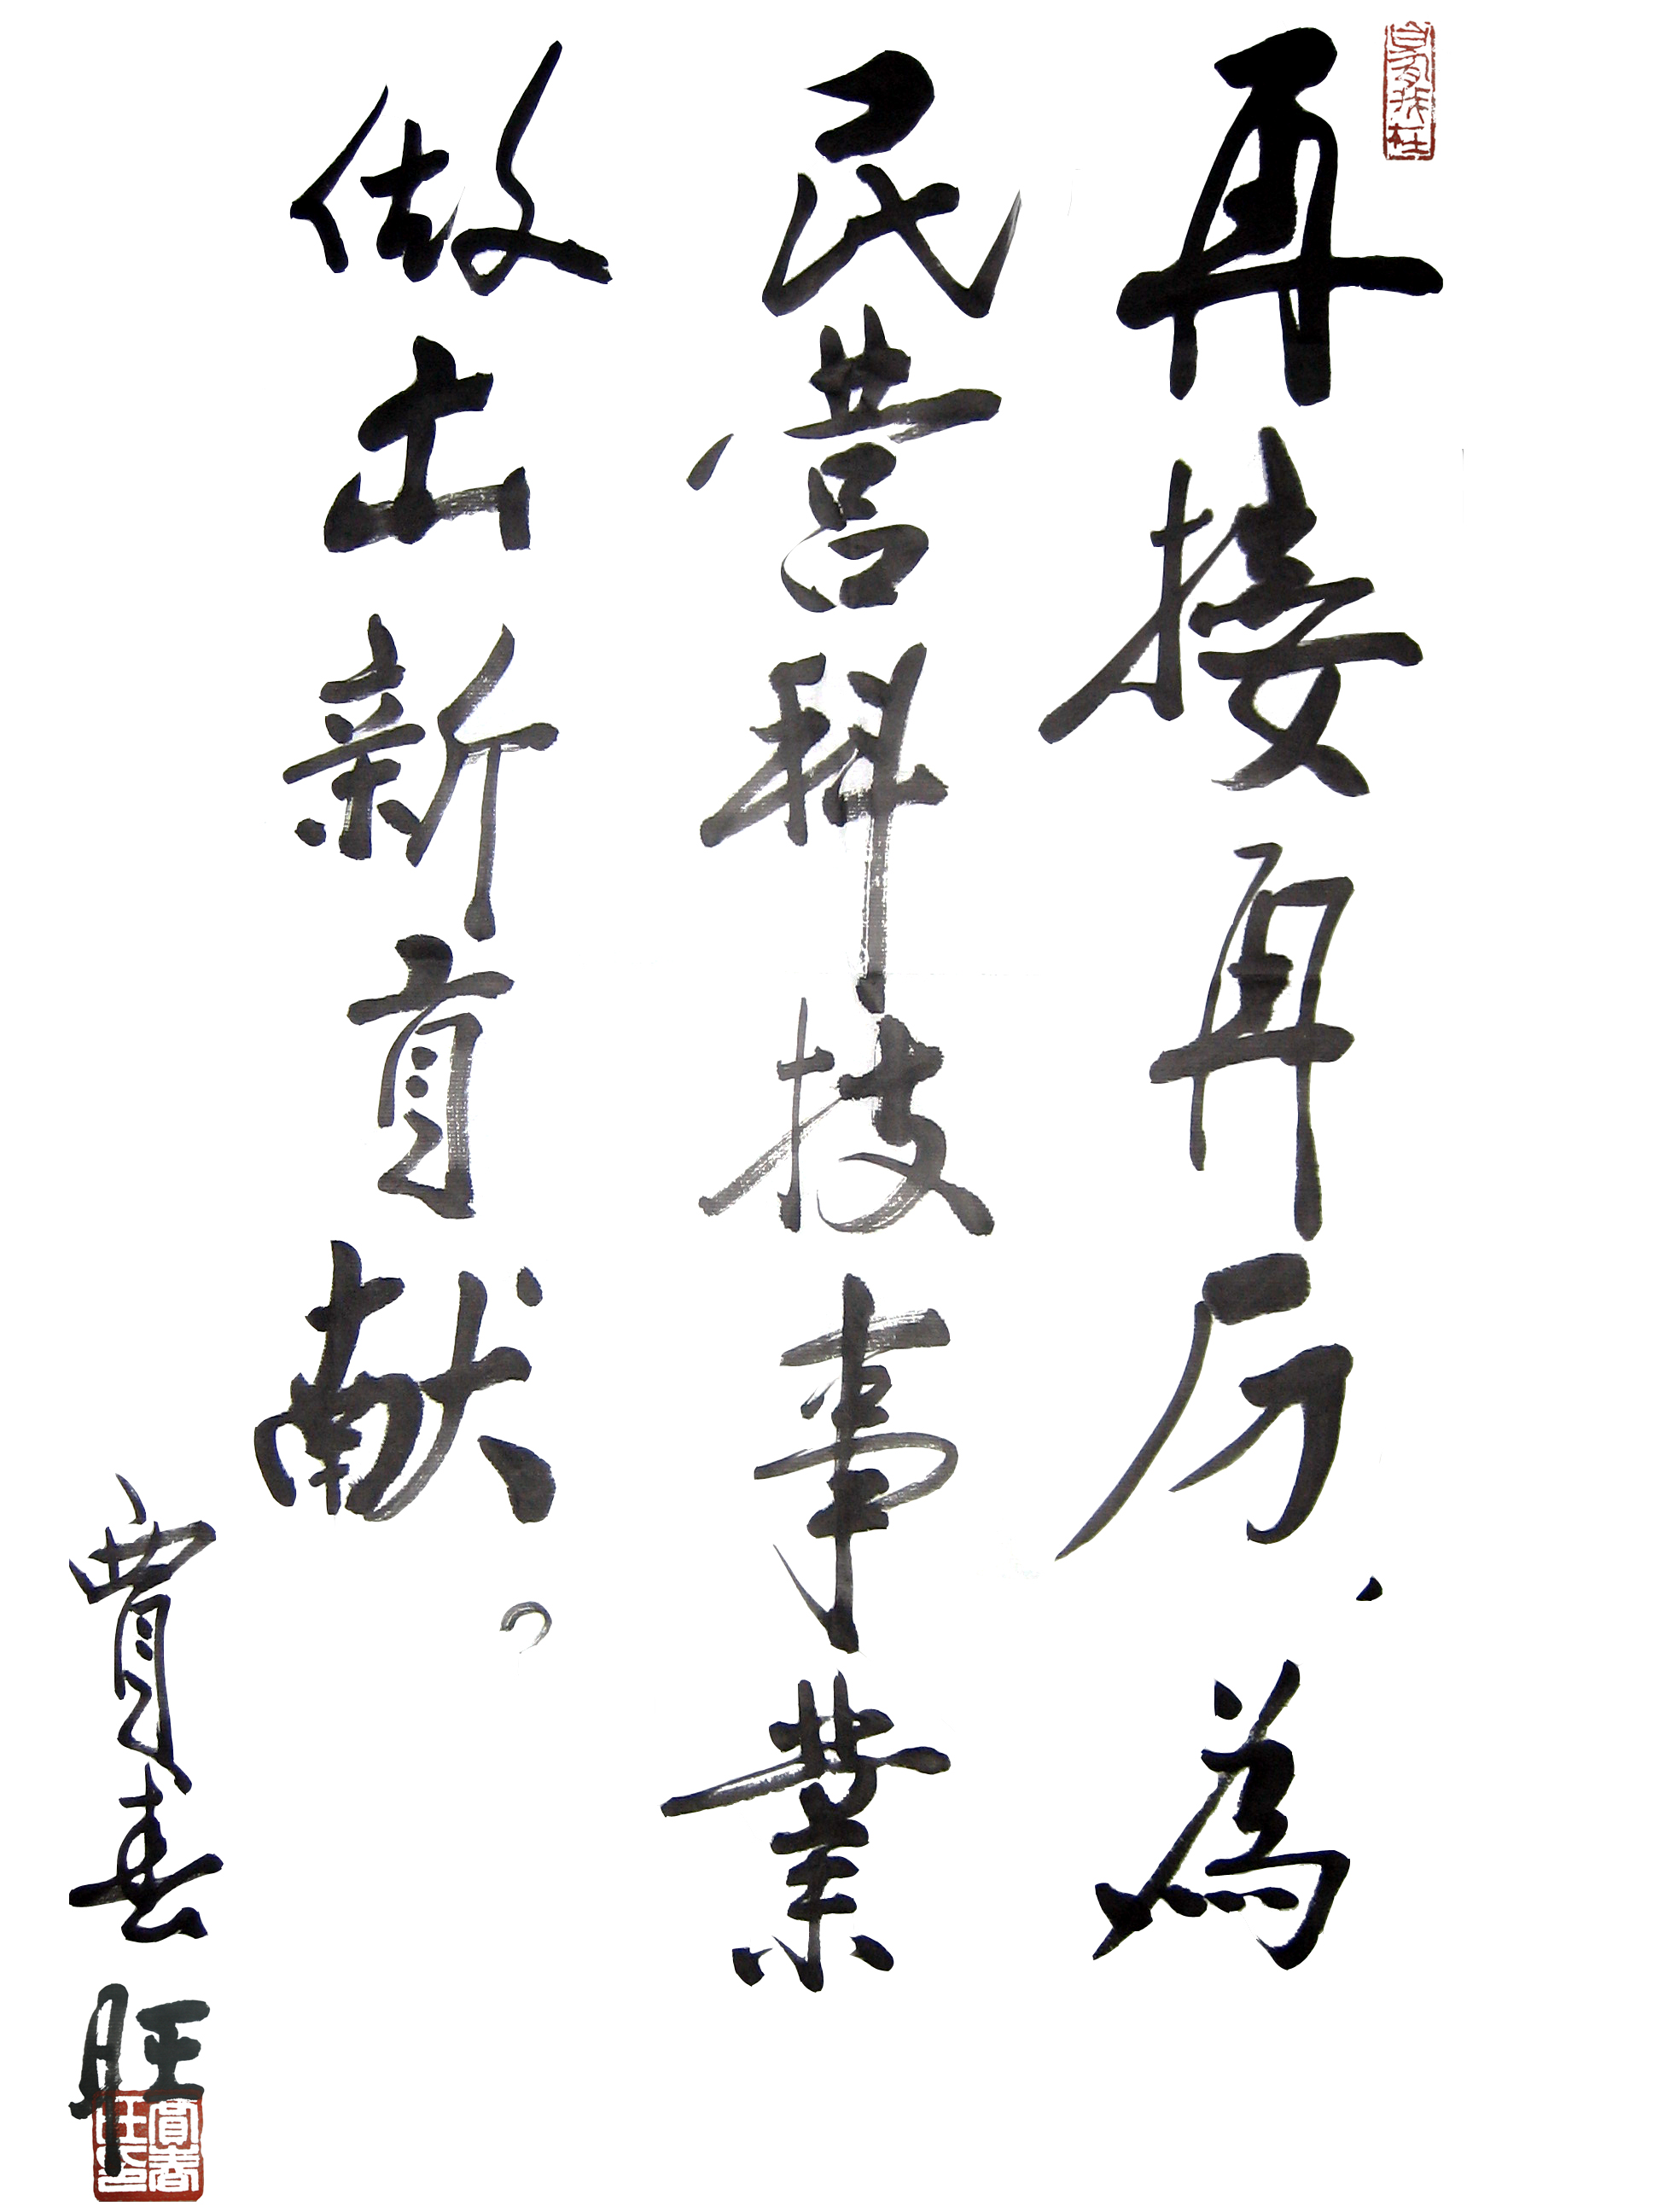 再接再厉，為
民营科技事業
做出新貢献。
賈春旺
賈春旺印